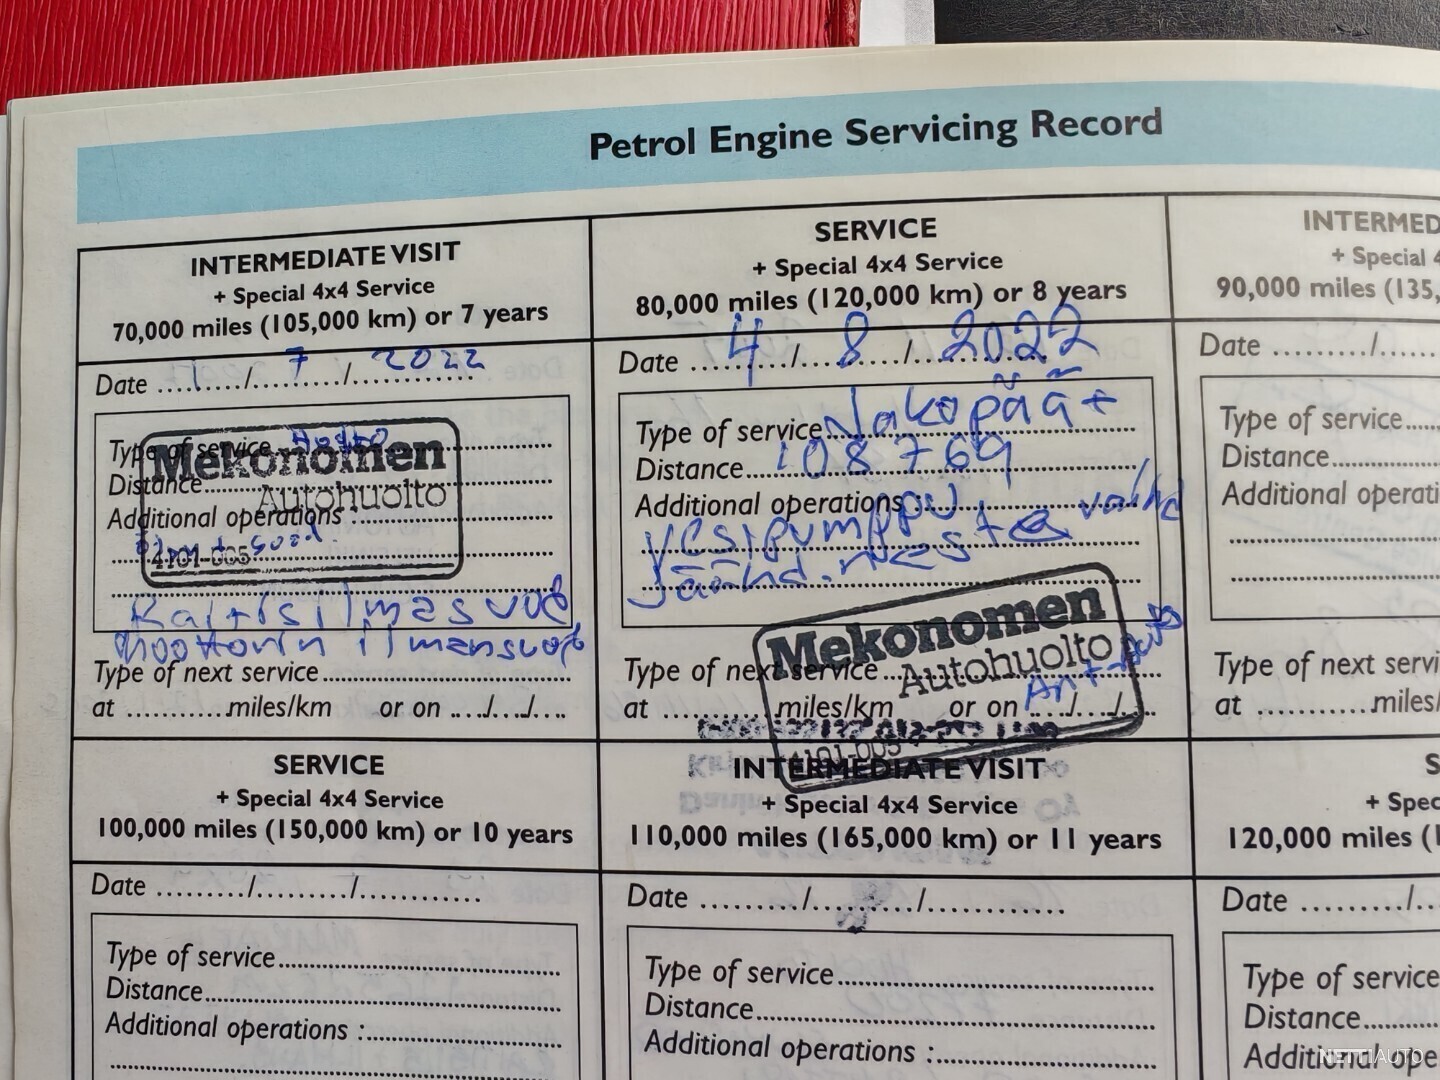 Petrol Engine Servicing Record
INTERMEDIATE VISIT
+ Special 4x4 Service
70,000 miles (105,000 km) or 7 years
Date 1 / 7 / 2022
Type of service Huolto
Mekonomen
Distance
Autohuolto
Additional operations :
4101-005
Raitisilmasuod
moottorin ilmansuod
Type of next service
at miles/km or on / /
SERVICE
+ Special 4x4 Service
80,000 miles (120,000 km) or 8 years
Date 4 / 8 / 2022
Type of service Jakopään
Distance 108769
Additional operations : vaihd
vesipumppu
Jäähd.neste
Mekonomen
Autohuolto
Type of next service
at miles/km or on / /
4101-005
INTERMED
+ Special 4
90,000 miles (135,
Date /
Type of service
Distance
Additional operati
Type of next servi
at miles/
SERVICE
+ Special 4x4 Service
100,000 miles (150,000 km) or 10 years
Date / /
Type of service
Distance
Additional operations :
INTERMEDIATE VISIT
+ Special 4x4 Service
110,000 miles (165,000 km) or 11 years
Date / /
Type of service
Distance
Additional operations :
S
+ Spec
120,000 miles (
Date /
Type of service
Distance
Additional ope
NETTIAUTO